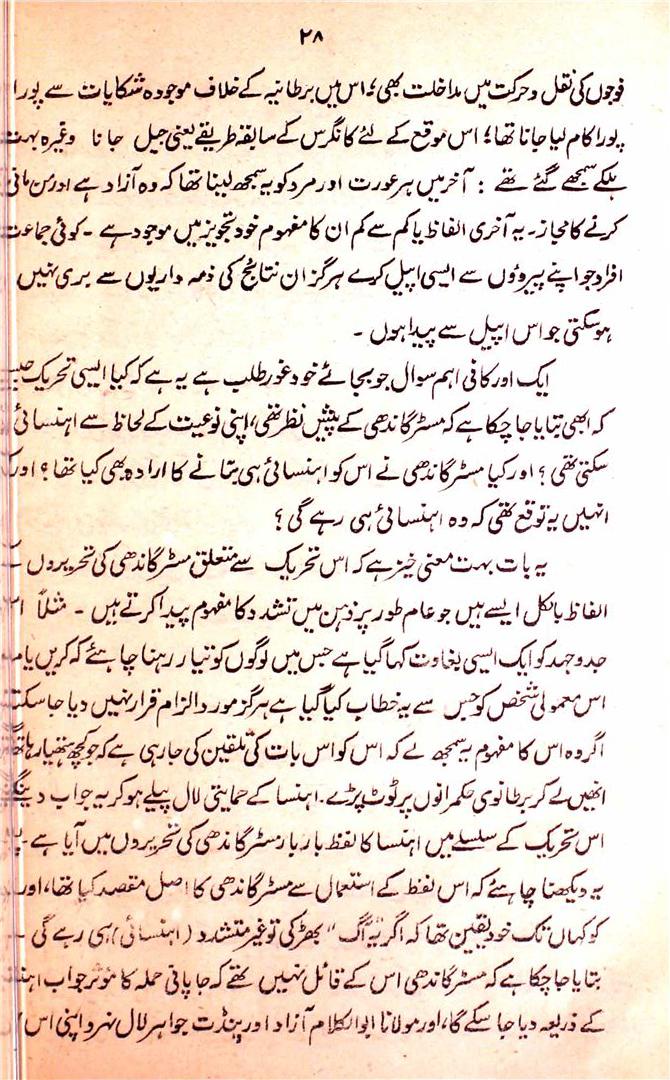 ۲۸
فوجوں کی نقل و حرکت میں مداخلت بھی؛ اس میں برطانیہ کے خلاف موجودہ شکایات سے پورا
پورا کام لیا جانا تھا؛ اس موقع کے لئے کانگرس کے سابقہ طریقے یعنی جیل جانا وغیرہ بہت
ہلکے سمجھے گئے تھے : آخر میں ہر عورت اور مرد کو یہ سمجھ لینا تھا کہ وہ آزاد ہے اور من مانی
کرنے کا مجاز۔ یہ آخری الفاظ یا کم سے کم ان کا مفہوم خود تجویز میں موجود ہے ۔ کوئی جماعت
افراد جو اپنے پیروؤں سے ایسی اپیل کرے ہرگز ان نتائج کی ذمہ داریوں سے بری نہیں
ہو سکتی جو اس اپیل سے پیدا ہوں ۔
ایک اور کافی اہم سوال جو بجائے خود غور طلب ہے یہ ہے کہ کیا ایسی تحریک
کہ ابھی بتایا جا چکا ہے کہ مسٹر گاندھی کے پیش نظر تھی، اپنی نوعیت کے لحاظ سے اہنسائی
سکتی تھی ؟ اور کیا مسٹر گاندھی نے اس کو اہنسائی ہی بنانے کا ارادہ بھی کیا تھا ؟ اور
انہیں یہ توقع تھی کہ وہ اہنسائی ہی رہے گی ؟
یہ بات بہت معنی خیز ہے کہ اس تحریک سے متعلق مسٹر گاندھی کی تحریروں
الفاظ بالکل ایسے ہیں جو عام طور پر ذہن میں تشدد کا مفہوم پیدا کرتے ہیں ۔ مثلاً
جدوجہد کو ایک ایسی بغاوت کہا گیا ہے جس میں لوگوں کو تیار رہنا چاہئے کہ کریں یا
اس معمولی شخص کو جس سے یہ خطاب کیا گیا ہے ہرگز مورد الزام قرار نہیں دیا جا سکتا
اگر وہ اس کا مفہوم یہ سمجھ لے کہ اس کو اس بات کی تلقین کی جا رہی ہے کہ جو کچھ ہتھیار
انھیں لے کر برطانوی حکمرانوں پر ٹوٹ پڑے۔ اہنسا کے حمایتی لال پیلے ہو کر یہ جواب دینگے
اس تحریک کے سلسلے میں اہنسا کا لفظ بار بار مسٹر گاندھی کی تحریروں میں آیا ہے ۔
یہ دیکھنا چاہئے کہ اس لفظ کے استعمال سے مسٹر گاندھی کا اصل مقصد کیا تھا، اور
کو کہاں تک خود یقین تھا کہ اگر یہ "آگ" بھڑکی تو غیر متشدد (اہنسائی) ہی رہے گی ۔
بتایا جا چکا ہے کہ مسٹر گاندھی اس کے قائل نہیں تھے کہ جاپانی حملہ کا موثر جواب
کے ذریعہ دیا جا سکے گا، اور مولانا ابوالکلام آزاد اور پنڈت جواہر لال نہرو اپنی اس